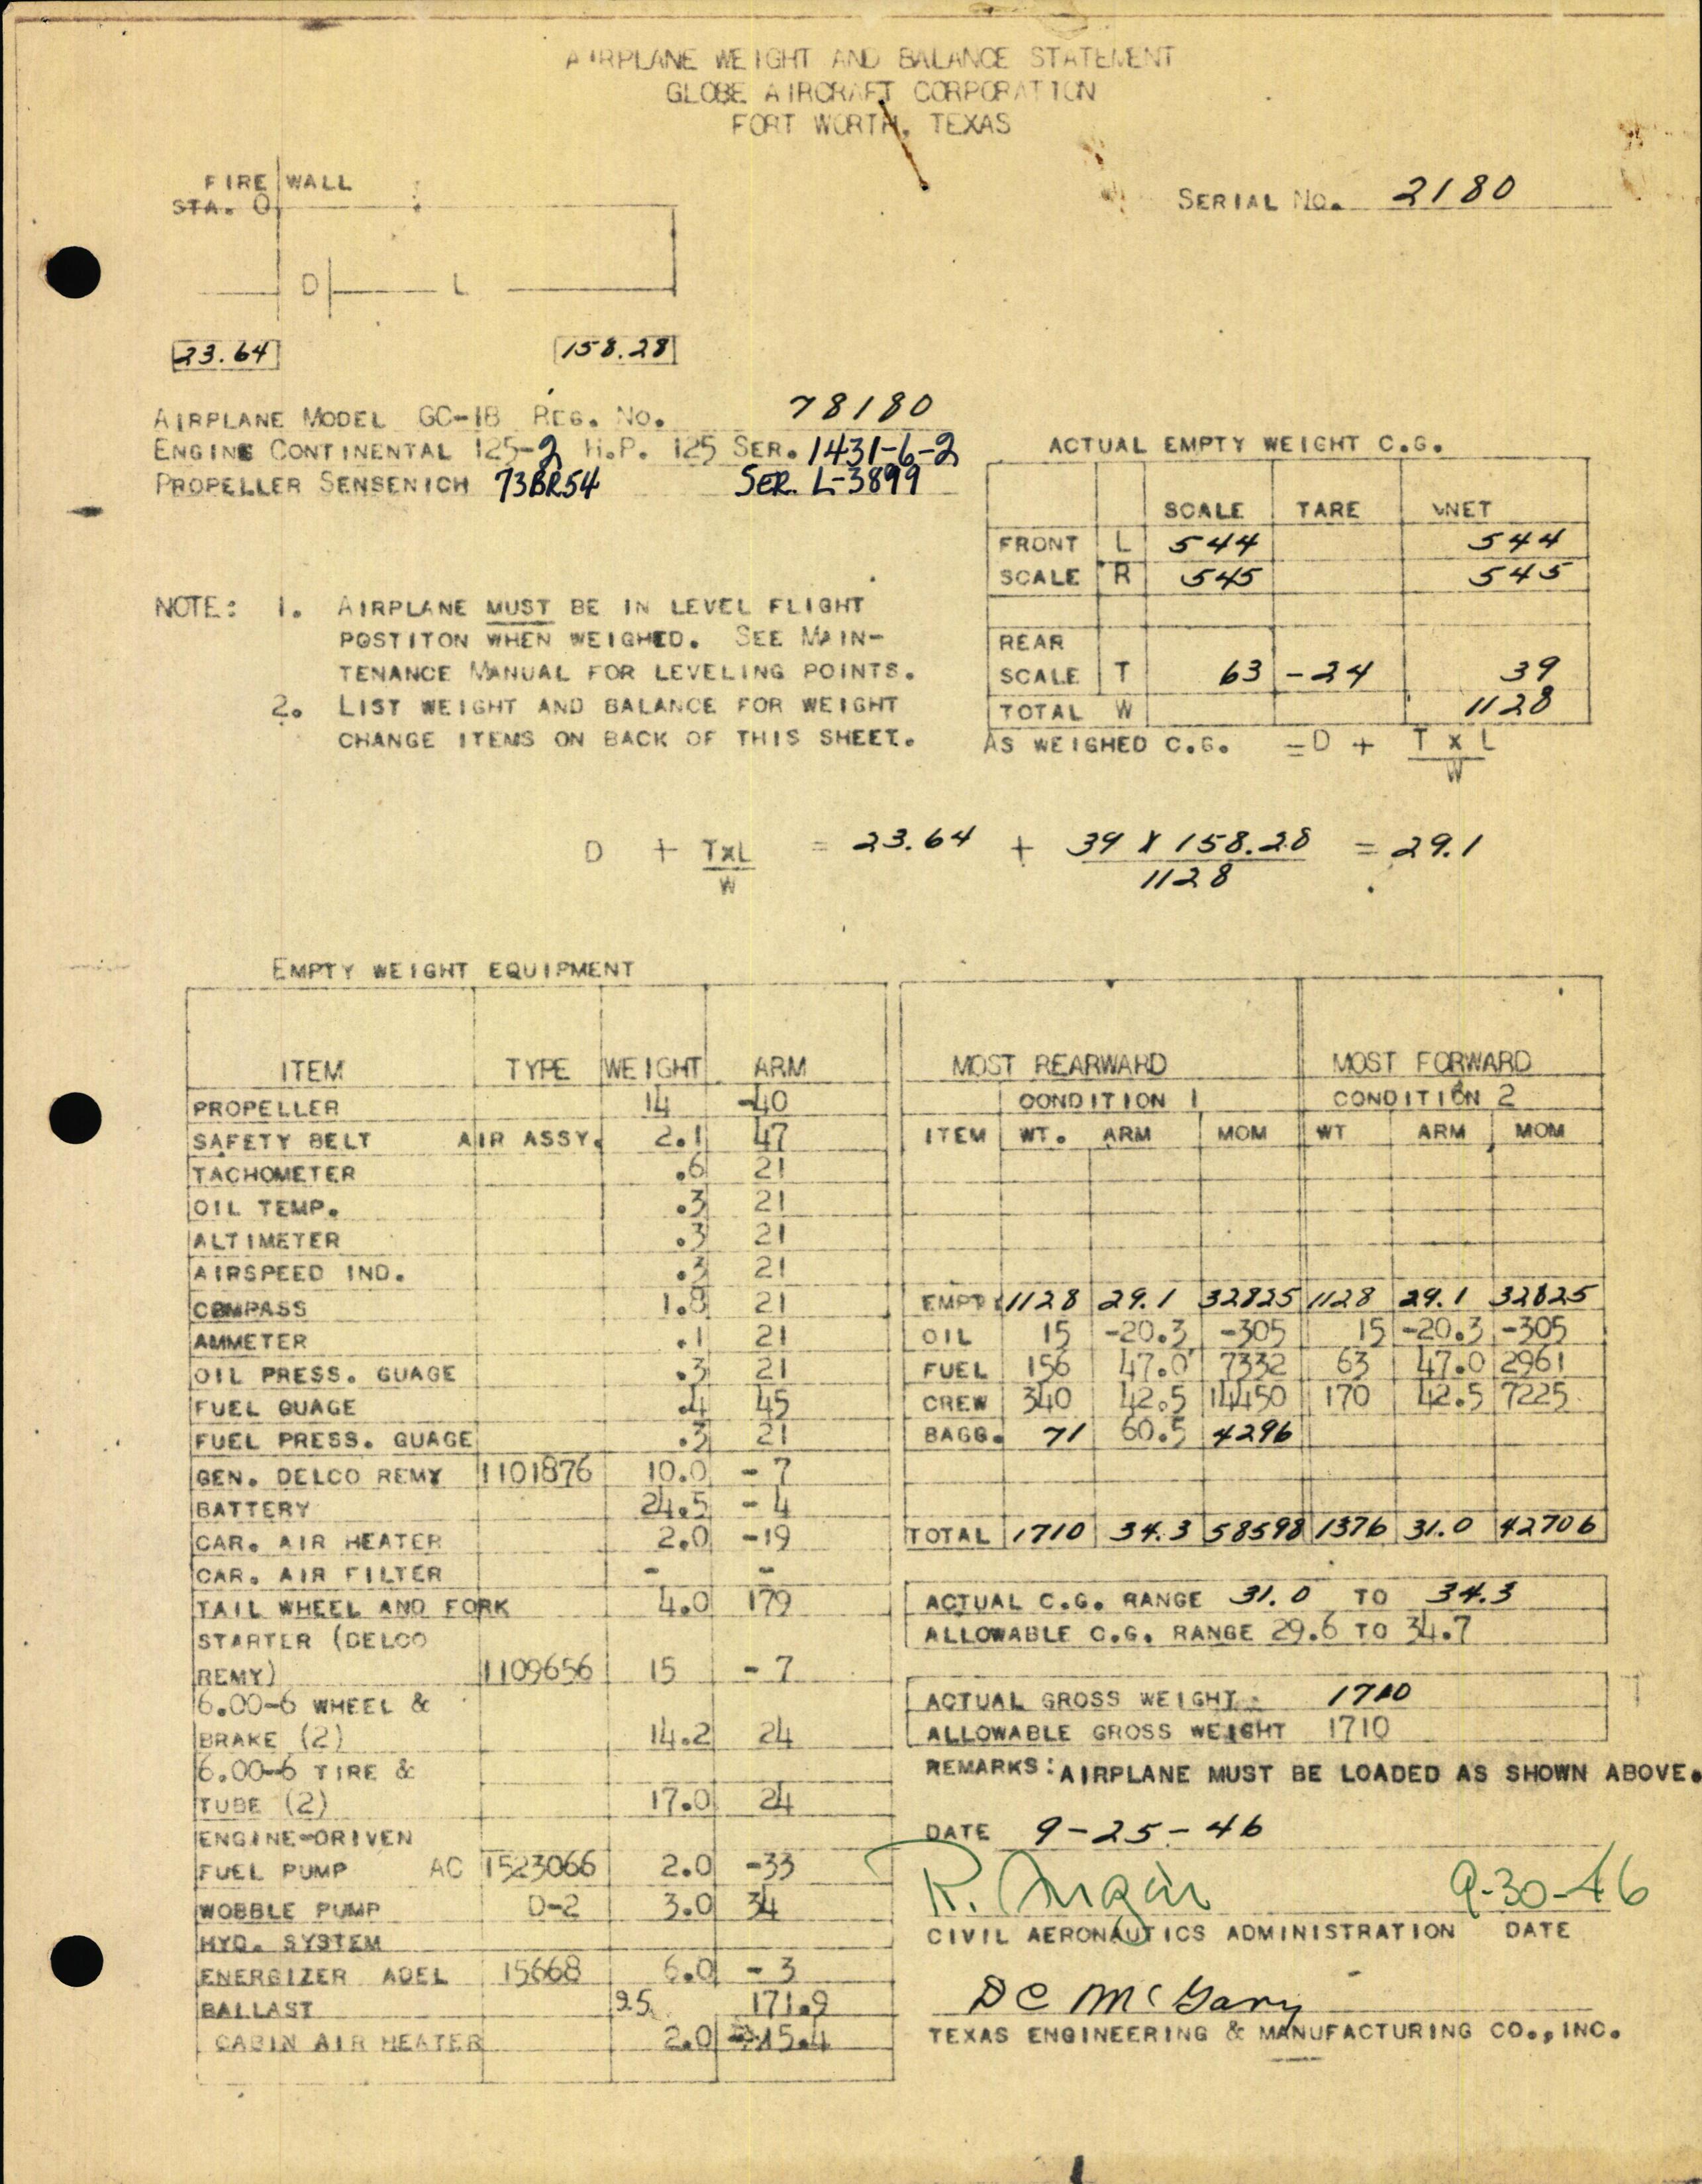 AIRPLANE WEIGHT AND BALANCE STATEMENT
GLOBE AIRCRAFT CORPORATION
FORT WORTH, TEXAS
FIRE WALL
STA. O
SERIAL NO. 2180
D L
23.64 158.28
AIRPLANE MODEL GC-1B REG. NO. 78180
ENGINE CONTINENTAL 125-2 H.P. 125 SER. 1431-6-2
PROPELLER SENSENICH 73BR54 SER. L-3899
ACTUAL EMPTY WEIGHT C.G.
SCALE TARE NET
FRONT L 544 544
SCALE R 545 545
REAR
SCALE T 63 -24 39
TOTAL W 1128
AS WEIGHED C.G. =D + T x L
W
NOTE: 1. AIRPLANE MUST BE IN LEVEL FLIGHT
POSTITON WHEN WEIGHED. SEE MAIN-
TENANCE MANUAL FOR LEVELING POINTS.
2. LIST WEIGHT AND BALANCE FOR WEIGHT
CHANGE ITEMS ON BACK OF THIS SHEET.
D + TxL = 23.64 + 39 X 158.28 = 29.1
W 1128
EMPTY WEIGHT EQUIPMENT
ITEM TYPE WEIGHT ARM
PROPELLER 14 -40
SAFETY BELT AIR ASSY. 2.1 47
TACHOMETER .6 21
OIL TEMP. .3 21
ALTIMETER .3 21
AIRSPEED IND. .3 21
COMPASS 1.8 21
AMMETER .1 21
OIL PRESS. GUAGE .3 21
FUEL GUAGE .4 45
FUEL PRESS. GUAGE .3 21
GEN. DELCO REMY 1101876 10.0 - 7
BATTERY 24.5 - 4
CAR. AIR HEATER 2.0 -19
CAR. AIR FILTER - -
TAIL WHEEL AND FORK 4.0 179
STARTER (DELCO
REMY) 1109656 15 - 7
6.00-6 WHEEL &
BRAKE (2) 14.2 24
6.00-6 TIRE &
TUBE (2) 17.0 24
ENGINE-DRIVEN
FUEL PUMP AC 1523066 2.0 -33
WOBBLE PUMP D-2 3.0 34
HYD. SYSTEM
ENERGIZER ADEL 15668 6.0 - 3
BALLAST 9.5 171.9
CABIN AIR HEATER 2.0 15.4
MOST REARWARD MOST FORWARD
CONDITION 1 CONDITION 2
ITEM WT. ARM MOM WT ARM MOM
EMPT 1128 29.1 32825 1128 29.1 32825
OIL 15 -20.3 -305 15 -20.3 -305
FUEL 156 47.0 7332 63 47.0 2961
CREW 340 42.5 14450 170 42.5 7225
BAGG. 71 60.5 4296
TOTAL 1710 34.3 58598 1376 31.0 42706
ACTUAL C.G. RANGE 31.0 TO 34.3
ALLOWABLE C.G. RANGE 29.6 TO 34.7
ACTUAL GROSS WEIGHT 1710
ALLOWABLE GROSS WEIGHT 1710
REMARKS: AIRPLANE MUST BE LOADED AS SHOWN ABOVE.
DATE 9-25-46
R. 9-30-46
CIVIL AERONAUTICS ADMINISTRATION DATE
DC McGary
TEXAS ENGINEERING & MANUFACTURING CO., INC.